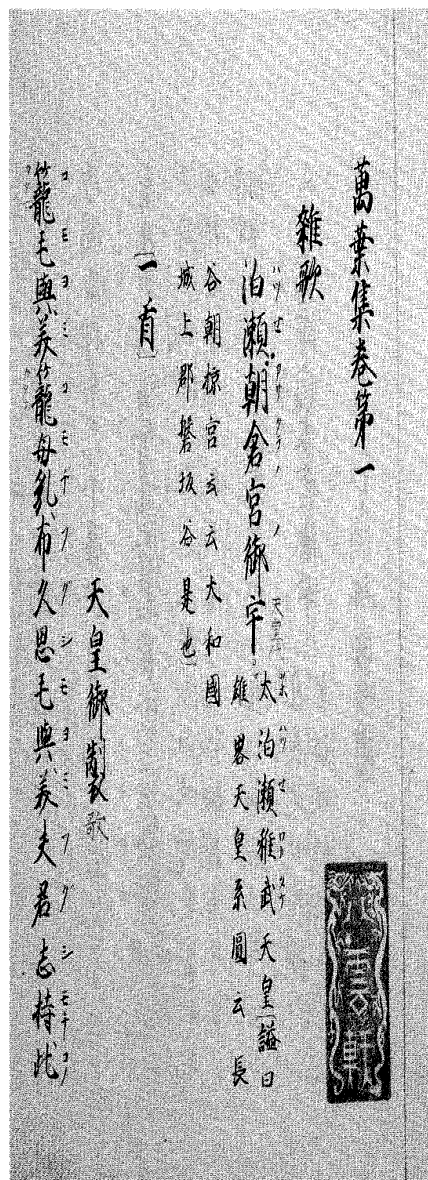 萬葉集卷第一
雜歌
泊瀬朝倉宮御宇天皇
太泊瀬稚武天皇謚曰
雄畧天皇系圖云長
谷朝椋宮云云大和國
城上郡磐坂谷是也
一首
天皇御製歌
籠毛與美籠母乳布久思毛與美夫君志持此